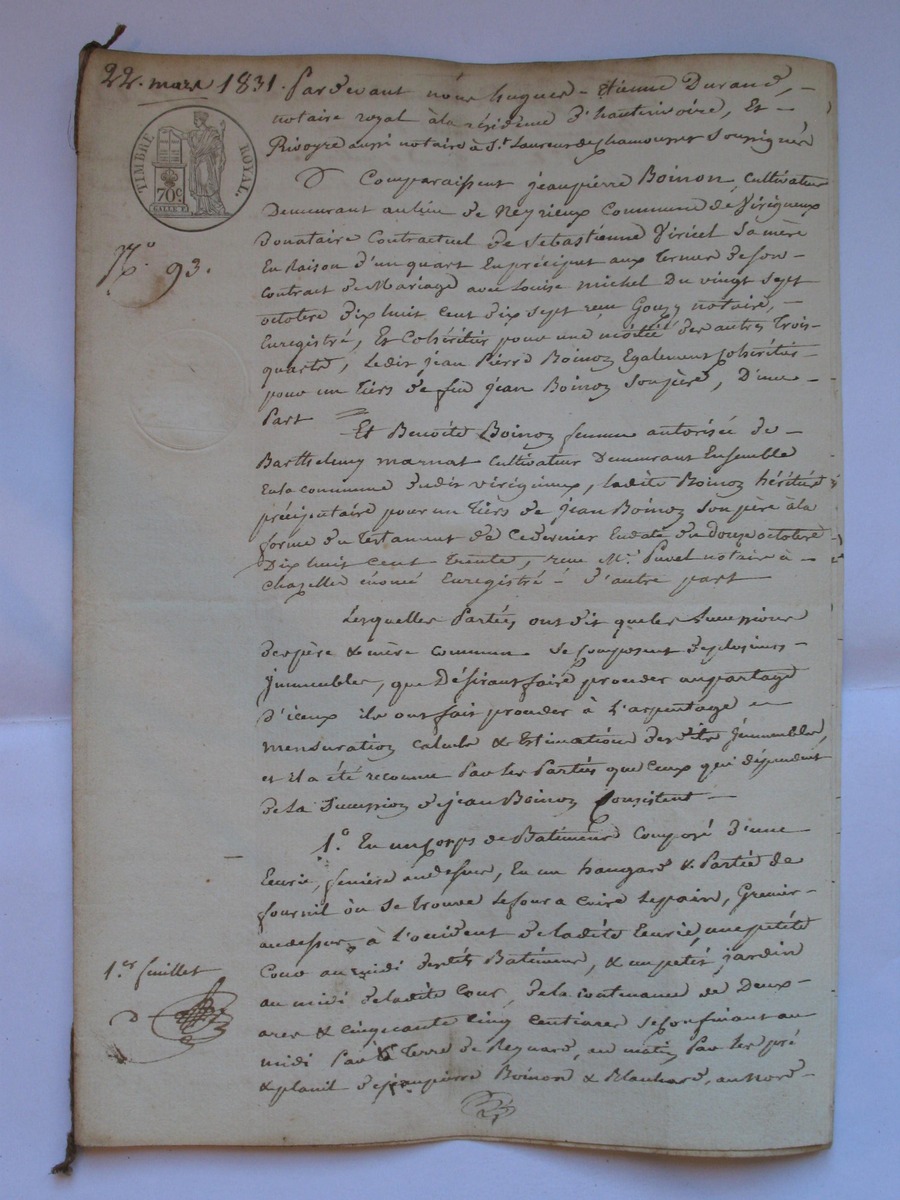 22. mars 1831.
Pardevant nous hugues-Etienne Durand,
notaire royal à la résidence d'hauterivoire, Et
Rivoyre aussi notaire à St. Laurent de chamousset soussignés
TIMBRE ROYAL.
70c.
Comparaissent jean pierre Boinon, cultivateur
Demeurant au lieu de Neyrieux Commune de Virigneux
Donataire Contractuel de Sebastienne Viricel sa mère
En Raison d'un quart En préciput aux termes de son
Contrat de Mariage avec Louise michel du vingt sept
octobre dix huit cent dix sept reçu Gouzy notaire,
N.o 93.
Enregistré, Et Cohéritier pour une moitié des autres trois
quarts, Ledit jean Pierre Boinon Egalement cohéritier
pour un Tiers de feu jean Boinon son père, D'une
Part
Et Benoite Boinon femme autorisée de
Barthelemy marnat Cultivateur Demeurant Ensemble
En la commune dudit virigneux, ladite Boinon héritière
préciputaire pour un Tiers de jean Boinon son père à la
forme du Testament de ce dernier En date du douze octobre
Dix huit cent trente, reçu Me. notaire à
chazelles Enregistré - D'autre part
Lesquelles Parties ont dit que les successions
des père & mère communs se composent de plusieurs
jmmeubles, que Désirant faire proceder au partage
d'iceux ils ont fait proceder à L'arpentage
mensuration calcule & Estimation desdits jmmeubles,
et il a été reconnu Par les Parties que Ceux qui dépendent
de la Succession de jean Boinon Consistent
1.o En un corps de Batiments Composé d'une
Ecurie, feniere au dessus, En un hangard & Partie de
fournil où se trouve le four a cuire le pain, Grenier
au dessus, à L'occident de ladite Ecurie, une petite
Cour au midi desdits Batiments, & un petit jardin
1.er feuillet
au midi de ladite Cour, de la contenance de Deux
ares & cinquante cinq centiares se confinant au
midi Par Terre de Reynard, au matin Par les pré
& de jean pierre Boinon & Blanchard, au Nord